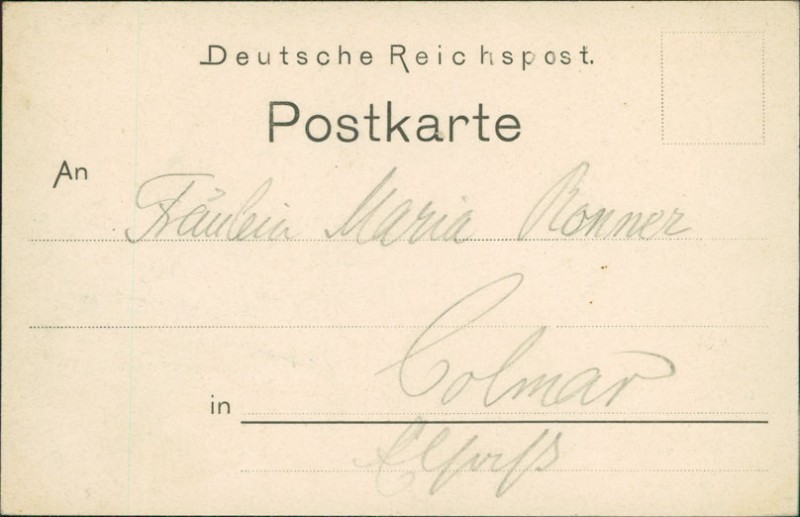 Deutsche Reichspost.
Postkarte
An
Fräulein Maria Ronner
in Colmar
Elsaß